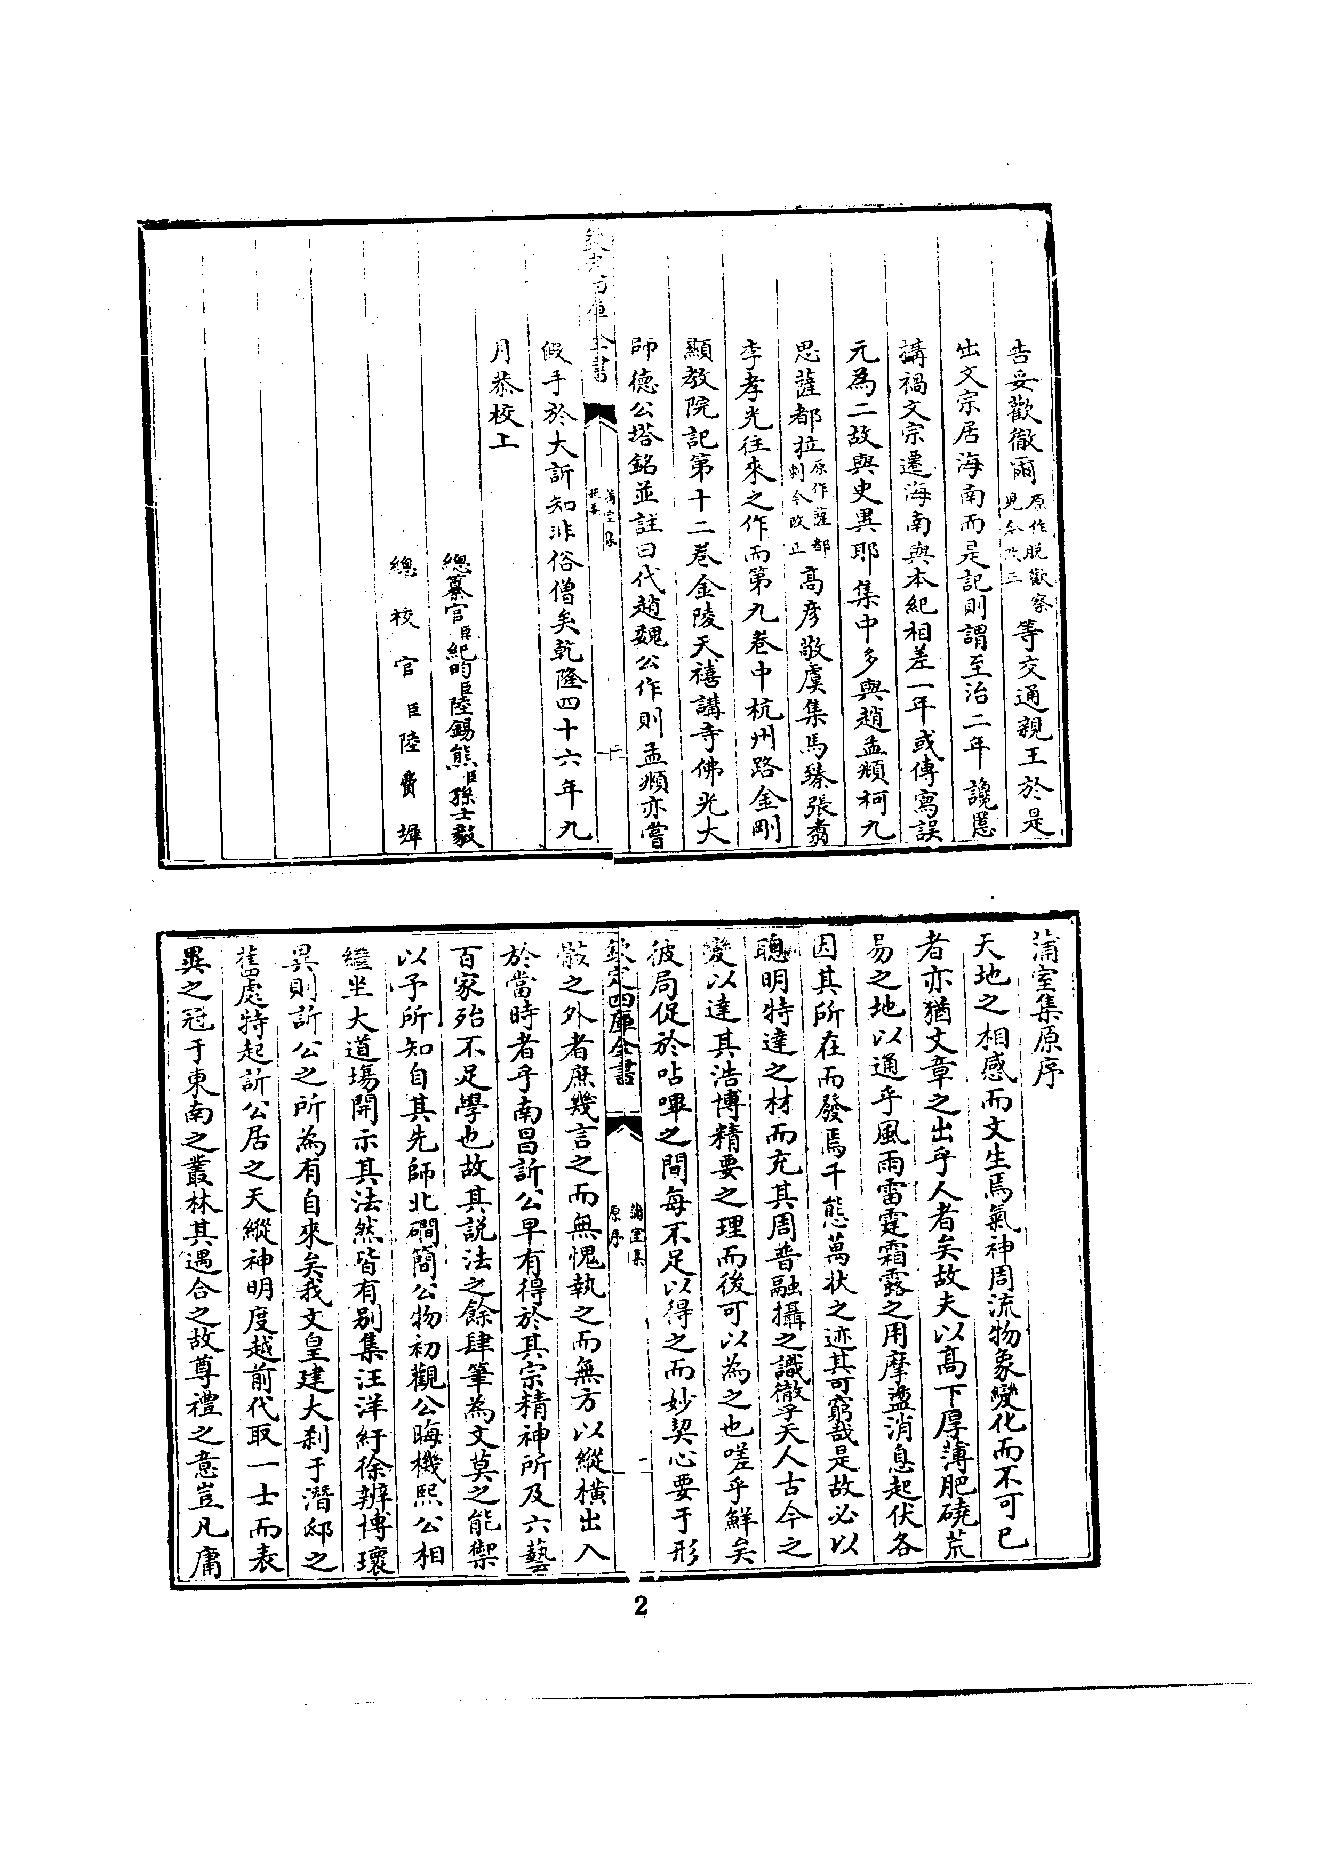 告妥歡徹爾原作脫歡察見今改正等交通親王於是
出文宗居海南而是記則謂至治二年讒慝
搆禍文宗遷海南與本紀相差一年或傳寫誤
元為二故與史異耶集中多與趙孟頫柯九
思薩都拉原作薩都剌今改正高彦敬虞集馬臻張翥
李孝光往來之作而第九卷中杭州路金剛
顯教院記第十二卷金陵天禧講寺佛光大
師德公塔銘並註曰代趙魏公作則孟頫亦嘗
欽定四庫全書
蒲室集
提要
二
假手於大訢知非俗僧矣乾隆四十六年九
月恭校上
總纂官臣紀昀臣陸錫熊臣孫士毅
總校官臣陸費墀
蒲室集原序
天地之相感而文生焉氣神周流物象變化而不可已
者亦猶文章之出乎人者矣故夫以高下厚薄肥磽荒
易之地以通乎風雨雷霆霜露之用摩盪消息起伏各
因其所在而發焉千態萬狀之迹其可窮哉是故必以
聰明特達之材而充其周普融攝之識徹乎天人古今之
變以達其浩博精要之理而後可以為之也嗟乎鮮矣
彼局促於呫嗶之間每不足以得之而妙契心要于形
欽定四庫全書
蒲室集
原序
一
骸之外者庶幾言之而無愧執之而無方以縱橫出入
於當時者乎南昌訢公早有得於其宗精神所及六藝
百家殆不足學也故其説法之餘肆筆為文莫之能禦
以予所知自其先師北磵簡公物初觀公晦機熙公相
繼坐大道場開示其法然皆有别集汪洋紆徐辨博瓌
異則訢公之所為有自來矣我文皇建大刹于潛邸之
舊處特起訢公居之天縱神明度越前代取一士而表
異之冠于東南之叢林其遇合之故尊禮之意豈凡庸
2